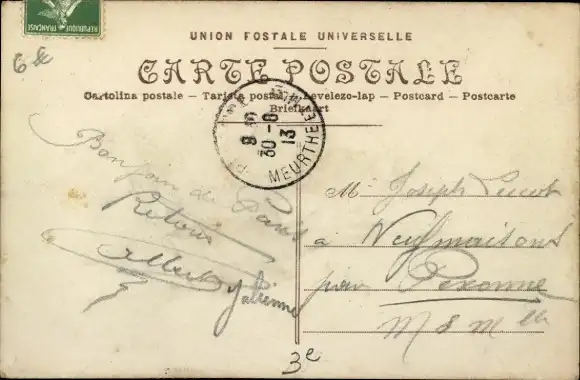 REPUBLIQUE FRANÇAISE
UNION POSTALE UNIVERSELLE
6 &
CARTE POSTALE
Cartolina postale – Tarjeta postal – Levelezo-lap – Postcard – Postcarte
Briefkaart
8 30-8 13
MEURTHE-ET-M
Bonjour de Paris
Retour
Albert
M. Joseph
à Neufmaisons
par Pexonne
M & Mlle
3e